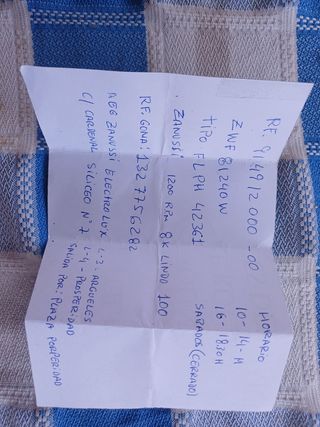 RF. 914912000_00
ZWF 81240W
tipo FLPH 42361
ZANUSSI 1200 RPM 8K LINDO 100
RF. GOMA: 1327756282
NEG ZANUSSI ELECTROLUX L-3: ARGUELES
C/ CARDENAL SILICEO Nº 7 L-4-PROSPERIDAD
SALIDA POR: PLAZA PORPERIDAD
HORARIO
10-14-H
16-1830H
SABADOS (CERRADO)